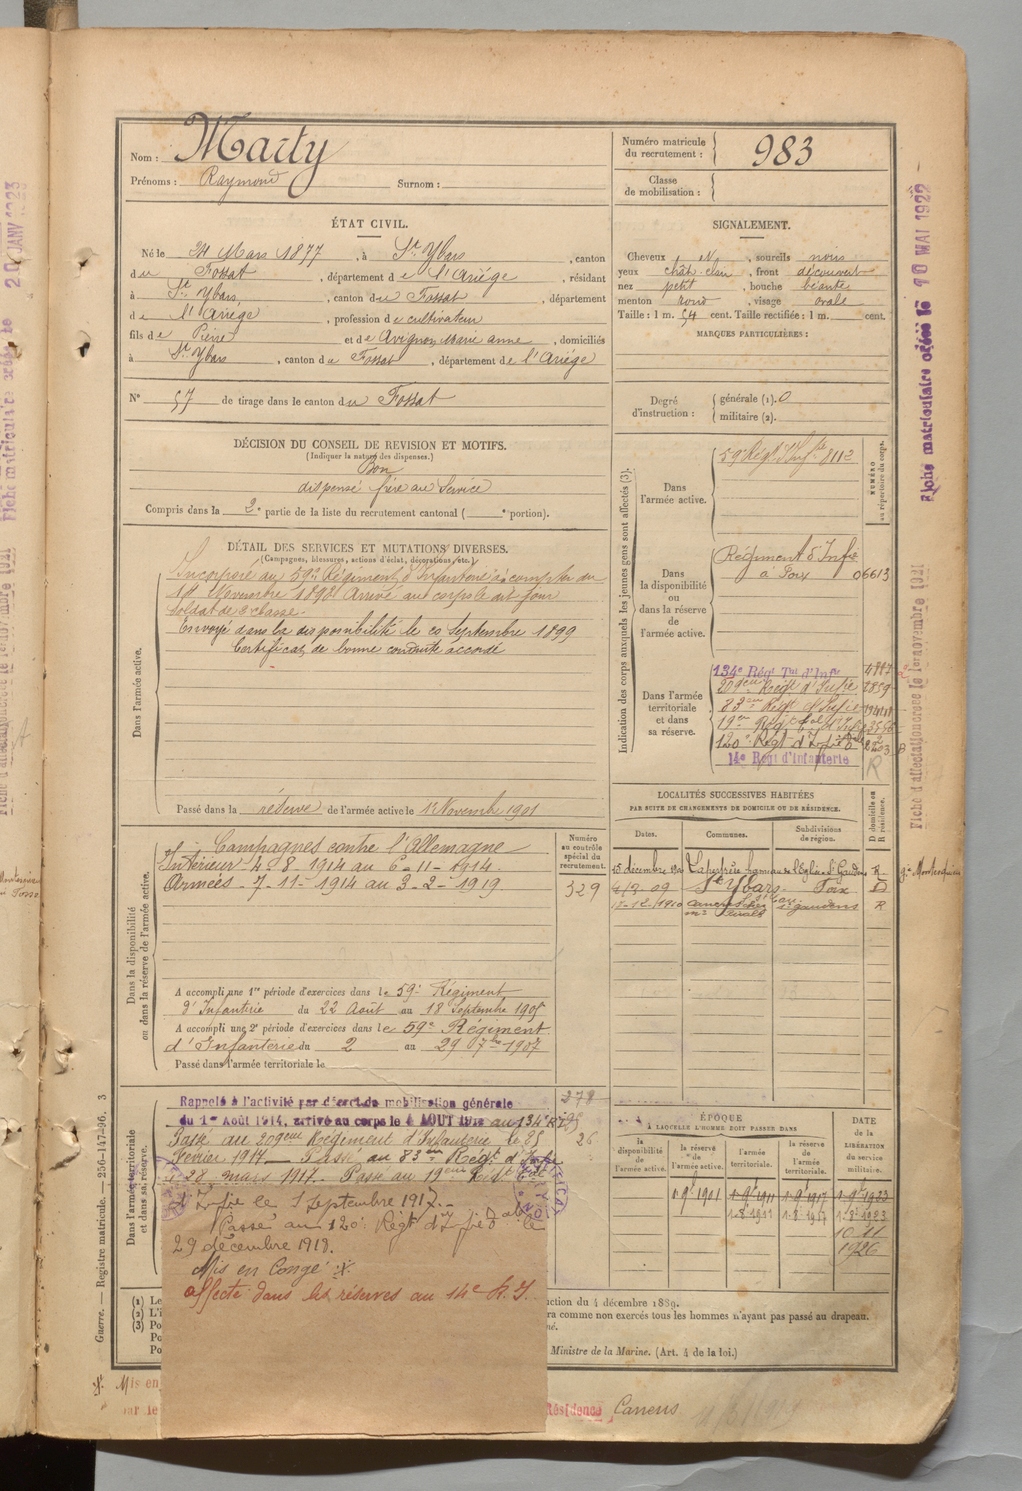 Nom : Marty
Prénoms : Raymond Surnom :
Numéro matricule du recrutement : 983
Classe de mobilisation :
ÉTAT CIVIL.
Né le 24 Mars 1877, à St Ybars, canton
du Fossat, département de l'Ariège, résidant
à St Ybars, canton du Fossat, département
de l'Ariège, profession de cultivateur
fils de Pierre et de Avignon Marie anne, domiciliés
à St Ybars, canton du Fossat, département de l'Ariège
N° 57 de tirage dans le canton du Fossat
SIGNALEMENT.
Cheveux N, sourcils noirs
yeux chât. clair, front découvert
nez petit, bouche béante
menton rond, visage ovale
Taille : 1 m. 54 cent. Taille rectifiée : 1 m. cent.
MARQUES PARTICULIÈRES :
Degré d'instruction : générale (1). 0
militaire (2).
DÉCISION DU CONSEIL DE REVISION ET MOTIFS.
(Indiquer la nature des dispenses.)
Bon
dispensé frère au Service
Compris dans la 2e partie de la liste du recrutement cantonal ( e portion).
DÉTAIL DES SERVICES ET MUTATIONS DIVERSES.
(Campagnes, blessures, actions d'éclat, décorations, etc.)
Dans l'armée active.
Incorporé au 59e Régiment d'Infanterie à compter du
Novembre 1898 Arrivé au corps le dit jour
soldat de 2e classe.
Envoyé dans la disponibilité le 20 Septembre 1899
Certificat de bonne conduite accordé
Passé dans la réserve de l'armée active le 1er Novembre 1901
Indication des corps auxquels les jeunes gens sont affectés (3).
NUMÉRO au répertoire du corps.
Dans l'armée active.
59e Régt d'Infie 8112
Dans la disponibilité ou dans la réserve de l'armée active.
Régiment d'Infie
à Foix 06613
Dans l'armée territoriale et dans sa réserve.
134e Régt Tal d'Infie
209eme Régt d'Infie
83eme Régt d'Infie
19eme Régt tal d'Infie
120e Régt d'Infie
14e Régt d'Infanterie
R
LOCALITÉS SUCCESSIVES HABITÉES
PAR SUITE DE CHANGEMENTS DE DOMICILE OU DE RÉSIDENCE.
Dates. Communes. Subdivisions de région. D domicile ou R résidence.
15 décembre St Gaudens R
09 St Ybars Foix D
12-12-1910 St gaudens R
Dans la disponibilité ou dans la réserve de l'armée active.
Numéro au contrôle spécial du recrutement.
Campagnes contre l'Allemagne
Intérieur 4-8-1914 au 6-11-1914.
Armées - 7-11-1914 au 3-2-1919 329
A accompli une 1re période d'exercices dans le 59e Régiment
d'Infanterie du 22 Août au 18 Septembre 1905
A accompli une 2e période d'exercices dans le 59e Régiment
d'Infanterie du 2 au 29 7bre 1907
Passé dans l'armée territoriale le
Dans l'armée territoriale et dans sa réserve.
278
Rappelé à l'activité par décret de mobilisation générale
du 1er Août 1914, arrivé au corps le 4 AOUT 1914 au 134e R
Passé au 209eme Régiment d'Infanterie le 25
Février 1917 - Passé au 83eme Régt d'Infie
le 28 mars 1917. Passé au 19eme Régt tal
d'Infie le 1 Septembre 1917.-
Passé au 120e Régt d'Infie le
29 décembre 1918.
Mis en Congé
affecté dans les réserves au 14e R.I.
ÉPOQUE
À LAQUELLE L'HOMME DOIT PASSER DANS
la disponibilité de l'armée active. la réserve de l'armée active. l'armée territoriale. la réserve de l'armée territoriale.
DATE de la LIBÉRATION du service militaire.
1-9bre 1901 1-9bre 1911 1-9bre 1917 1-9bre 1923
1-8bre 1911 1-8bre 1917 1-8bre 1923
10-11
1926
(1) Le
(2) L'i
(3) Po
Po
Po
uction du 4 décembre 1889.
ra comme non exercés tous les hommes n'ayant pas passé au drapeau.
né.
Ministre de la Marine. (Art. 4 de la loi.)
Mis en
par le
Résidence Canens
Guerre. — Registre matricule. — 256-147-96. 3
Fiche matriculaire créée le 10 MAI 1922
Fiche d'affectation créée le 1er novembre 1921
Fiche matriculaire créée le 20 JANV 1923